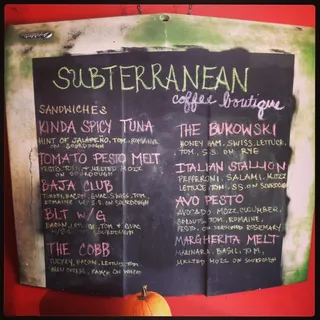 SUBTERRANEAN
coffee boutique
SANDWICHES
KINDA SPICY TUNA
HINT OF JALAPEÑO, TOM, ROMAINE
ON SOURDOUGH
TOMATO PESTO MELT
PESTO, TOM, MELTED MOZZ
ON SOURDOUGH
BAJA CLUB
TURKEY, BACON, GUAC, SWISS, TOM,
ROMAINE, ON SOURDOUGH
BLT W/G
BACON, LETTUCE, TOM & GUAC
SOURDOUGH
THE COBB
TURKEY, BACON, LETTUCE, TOM,
BLEU CHEESE, RANCH ON WHEAT
THE BUKOWSKI
HONEY HAM, SWISS, LETTUCE,
TOM, S.S. ON RYE
ITALIAN STALLION
PEPPERONI, SALAMI, MOZZ
LETTUCE, TOM, S.S. ON SOURDOUGH
AVO PESTO
AVOCADO, MOZZ, CUCUMBER,
SPROUTS, TOM, ROMAINE,
PESTO, ON ROSEMARY
MARGHERITA MELT
MARINARA, BASIL, TOM,
MELTED MOZZ ON SOURDOUGH